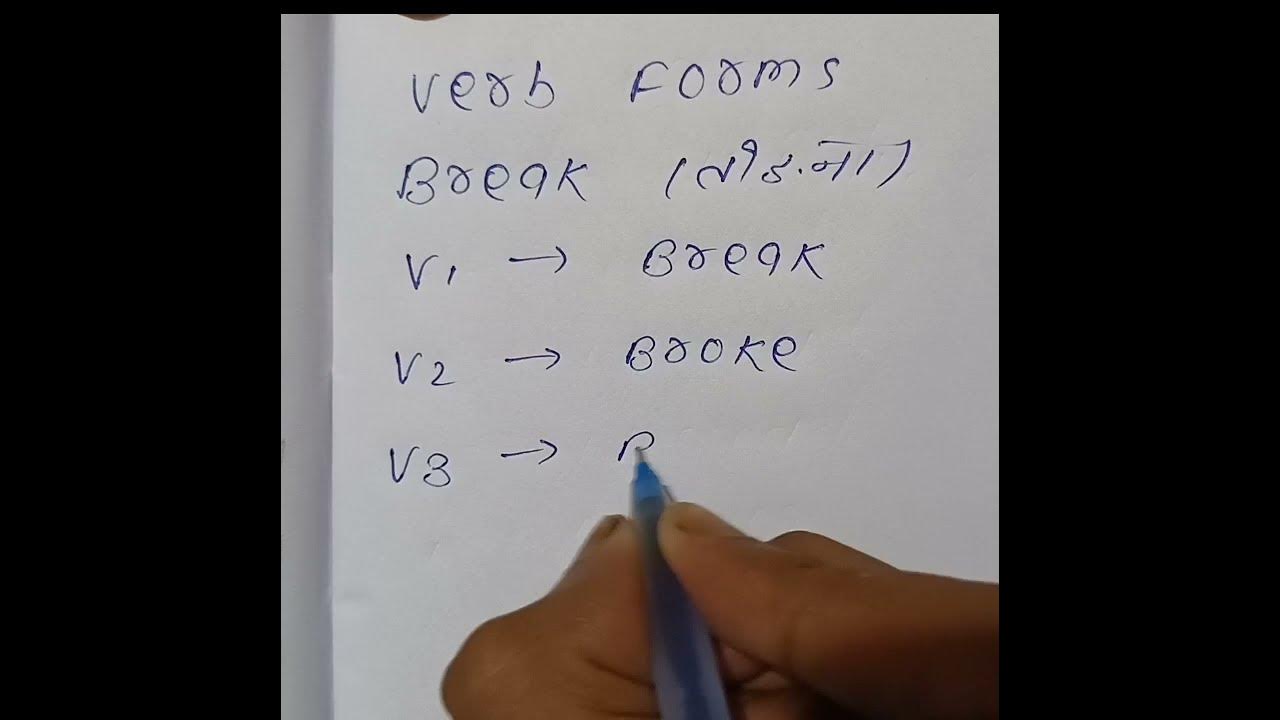 Verb Forms
Break (तोड़ना)
V1 → Break
V2 → Broke
V3 → B